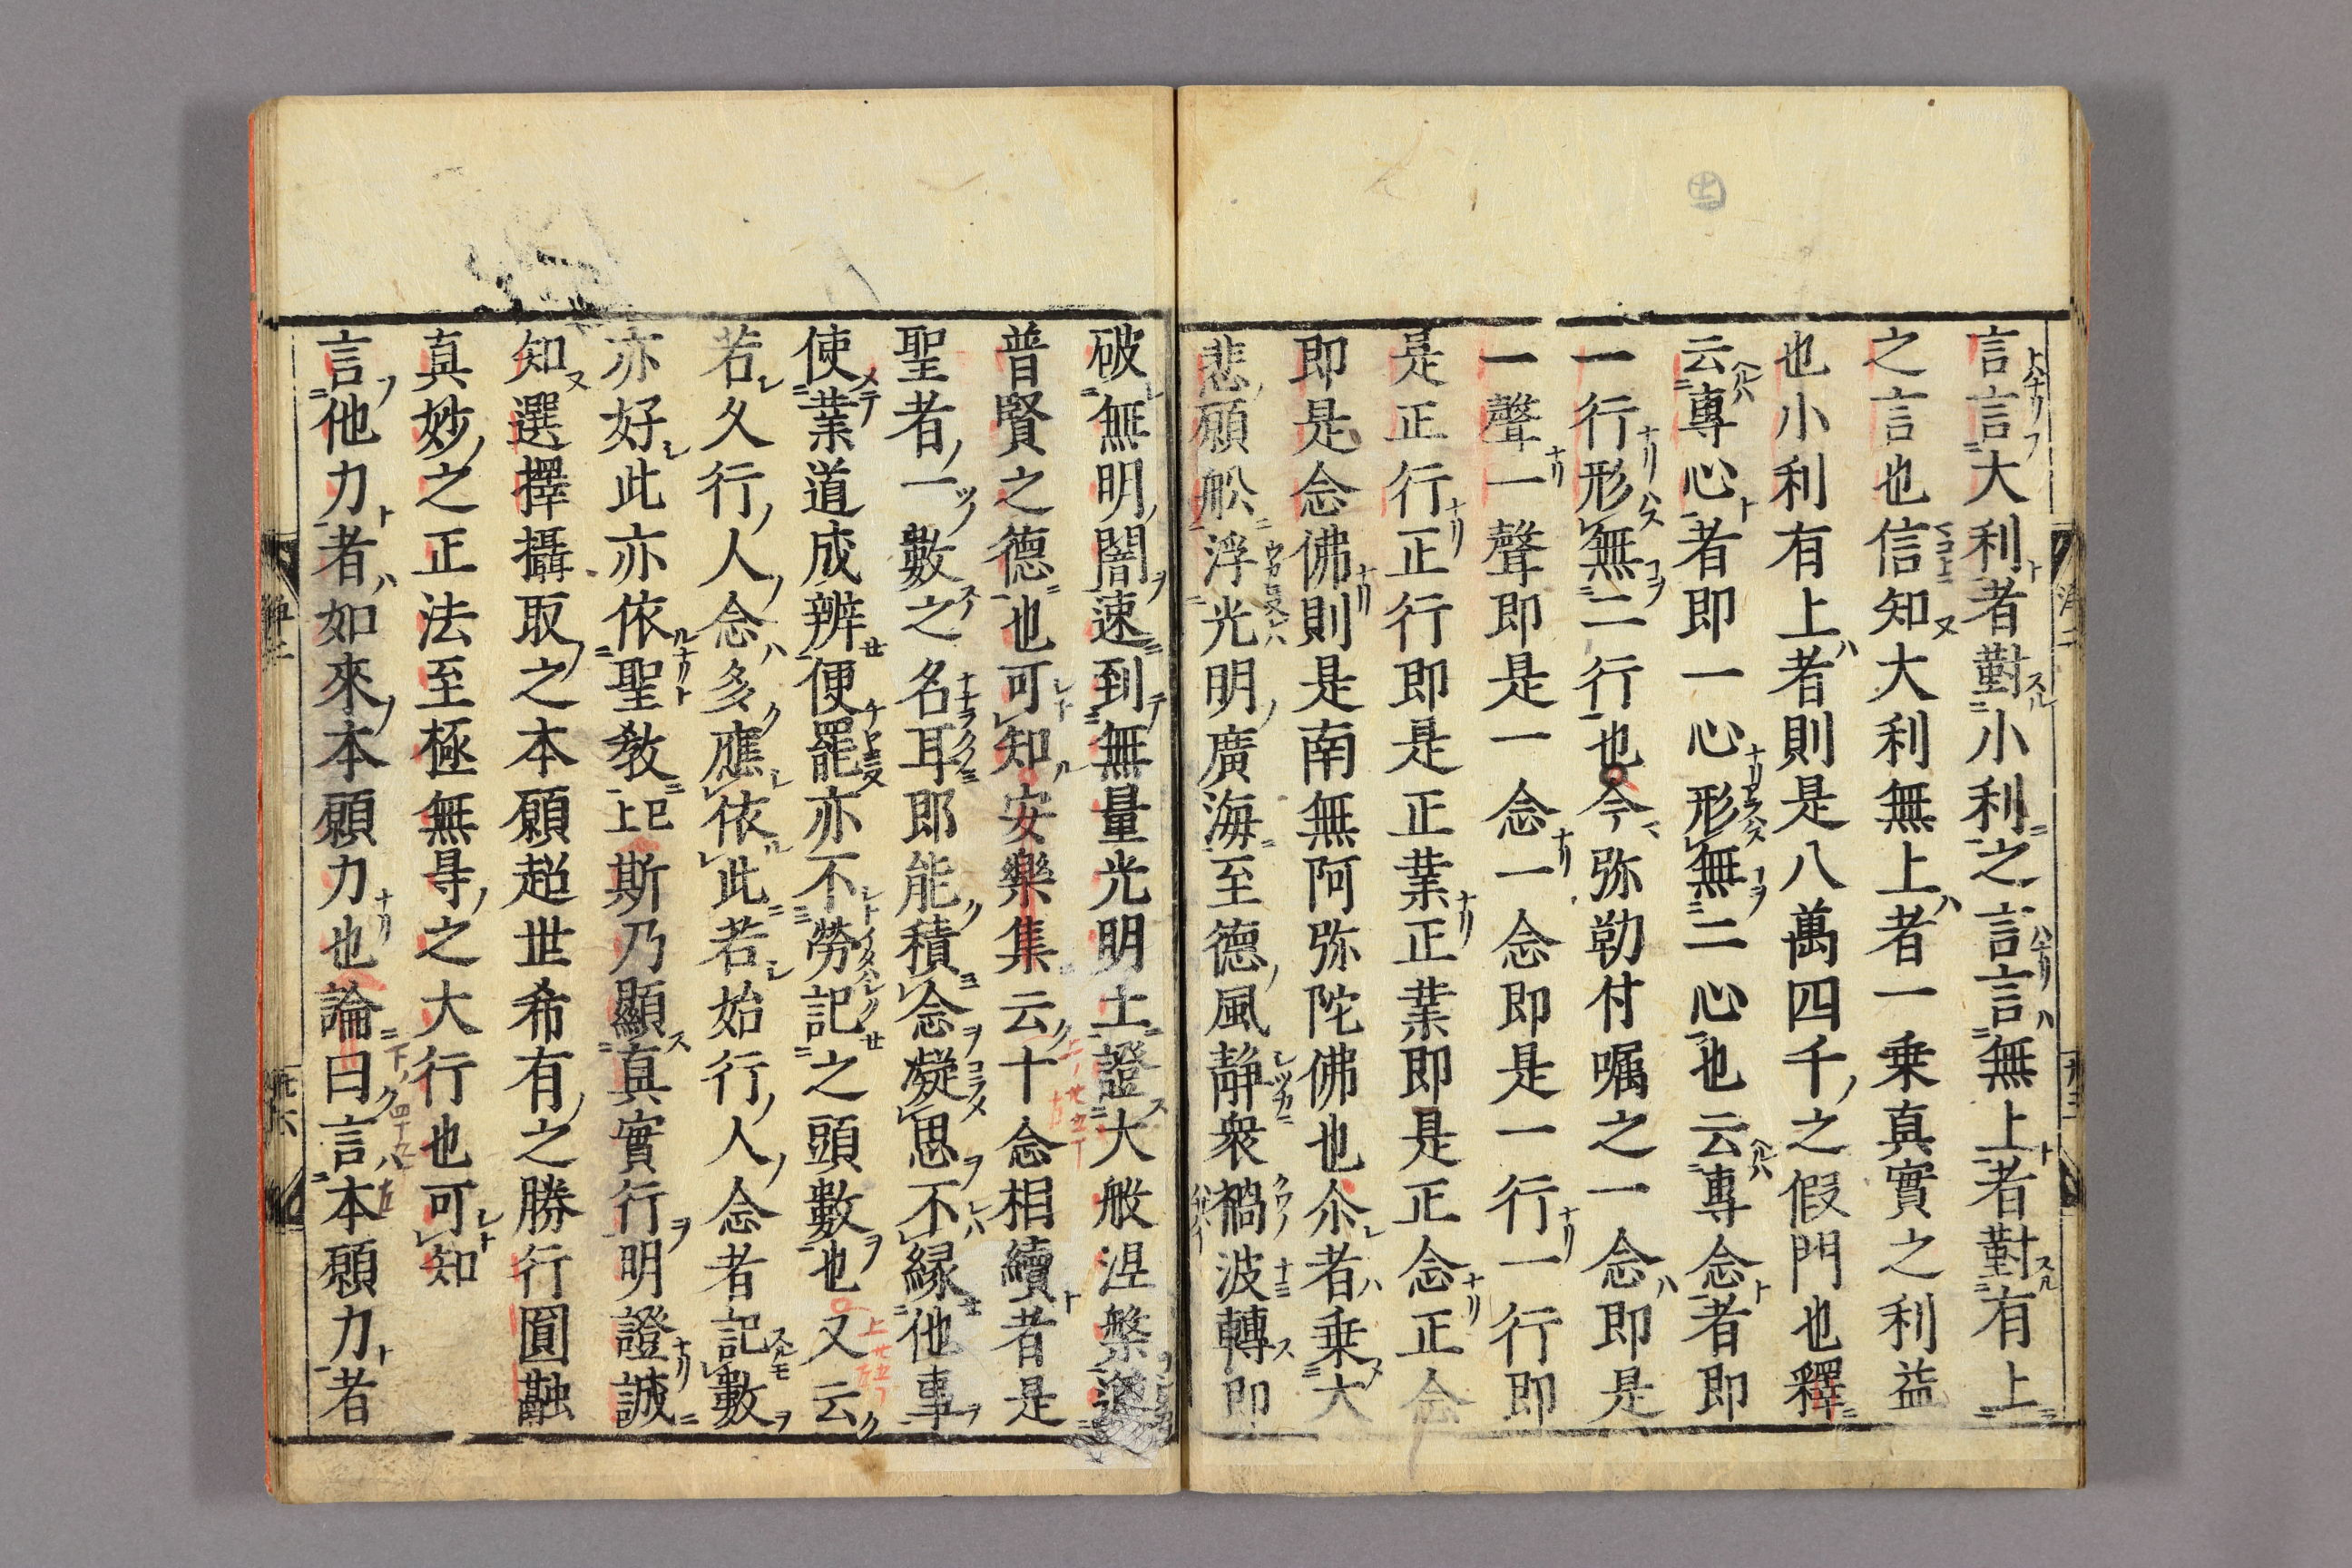 言言大利者對小利之言言無上者對有上
之言也信知大利無上者一乗真實之利益
也小利有上者則是八萬四千之假門也釋
云專心者即一心形無二心也云專念者即
一行形無二行也今弥勒付嘱之一念即是
一聲一聲即是一念一念即是一行一行即
是正行正行即是正業正業即是正念正念
即是念佛則是南無阿弥陀佛也尒者乗大
悲願舩浮光明廣海至德風静衆禍波轉即
破無明闇速到無量光明土證大般涅槃遵
普賢之德也可知安樂集云十念相續者是
聖者一數之名耳即能積念凝思不縁他事
使業道成辨便罷亦不勞記之頭數也又云
若久行人念多應依此若始行人念者記數
亦好此亦依聖教已上斯乃顯真實行明證誠
知選擇攝取之本願超世希有之勝行圓融
真妙之正法至極無㝵之大行也可知
言他力者如來本願力也論曰言本願力者